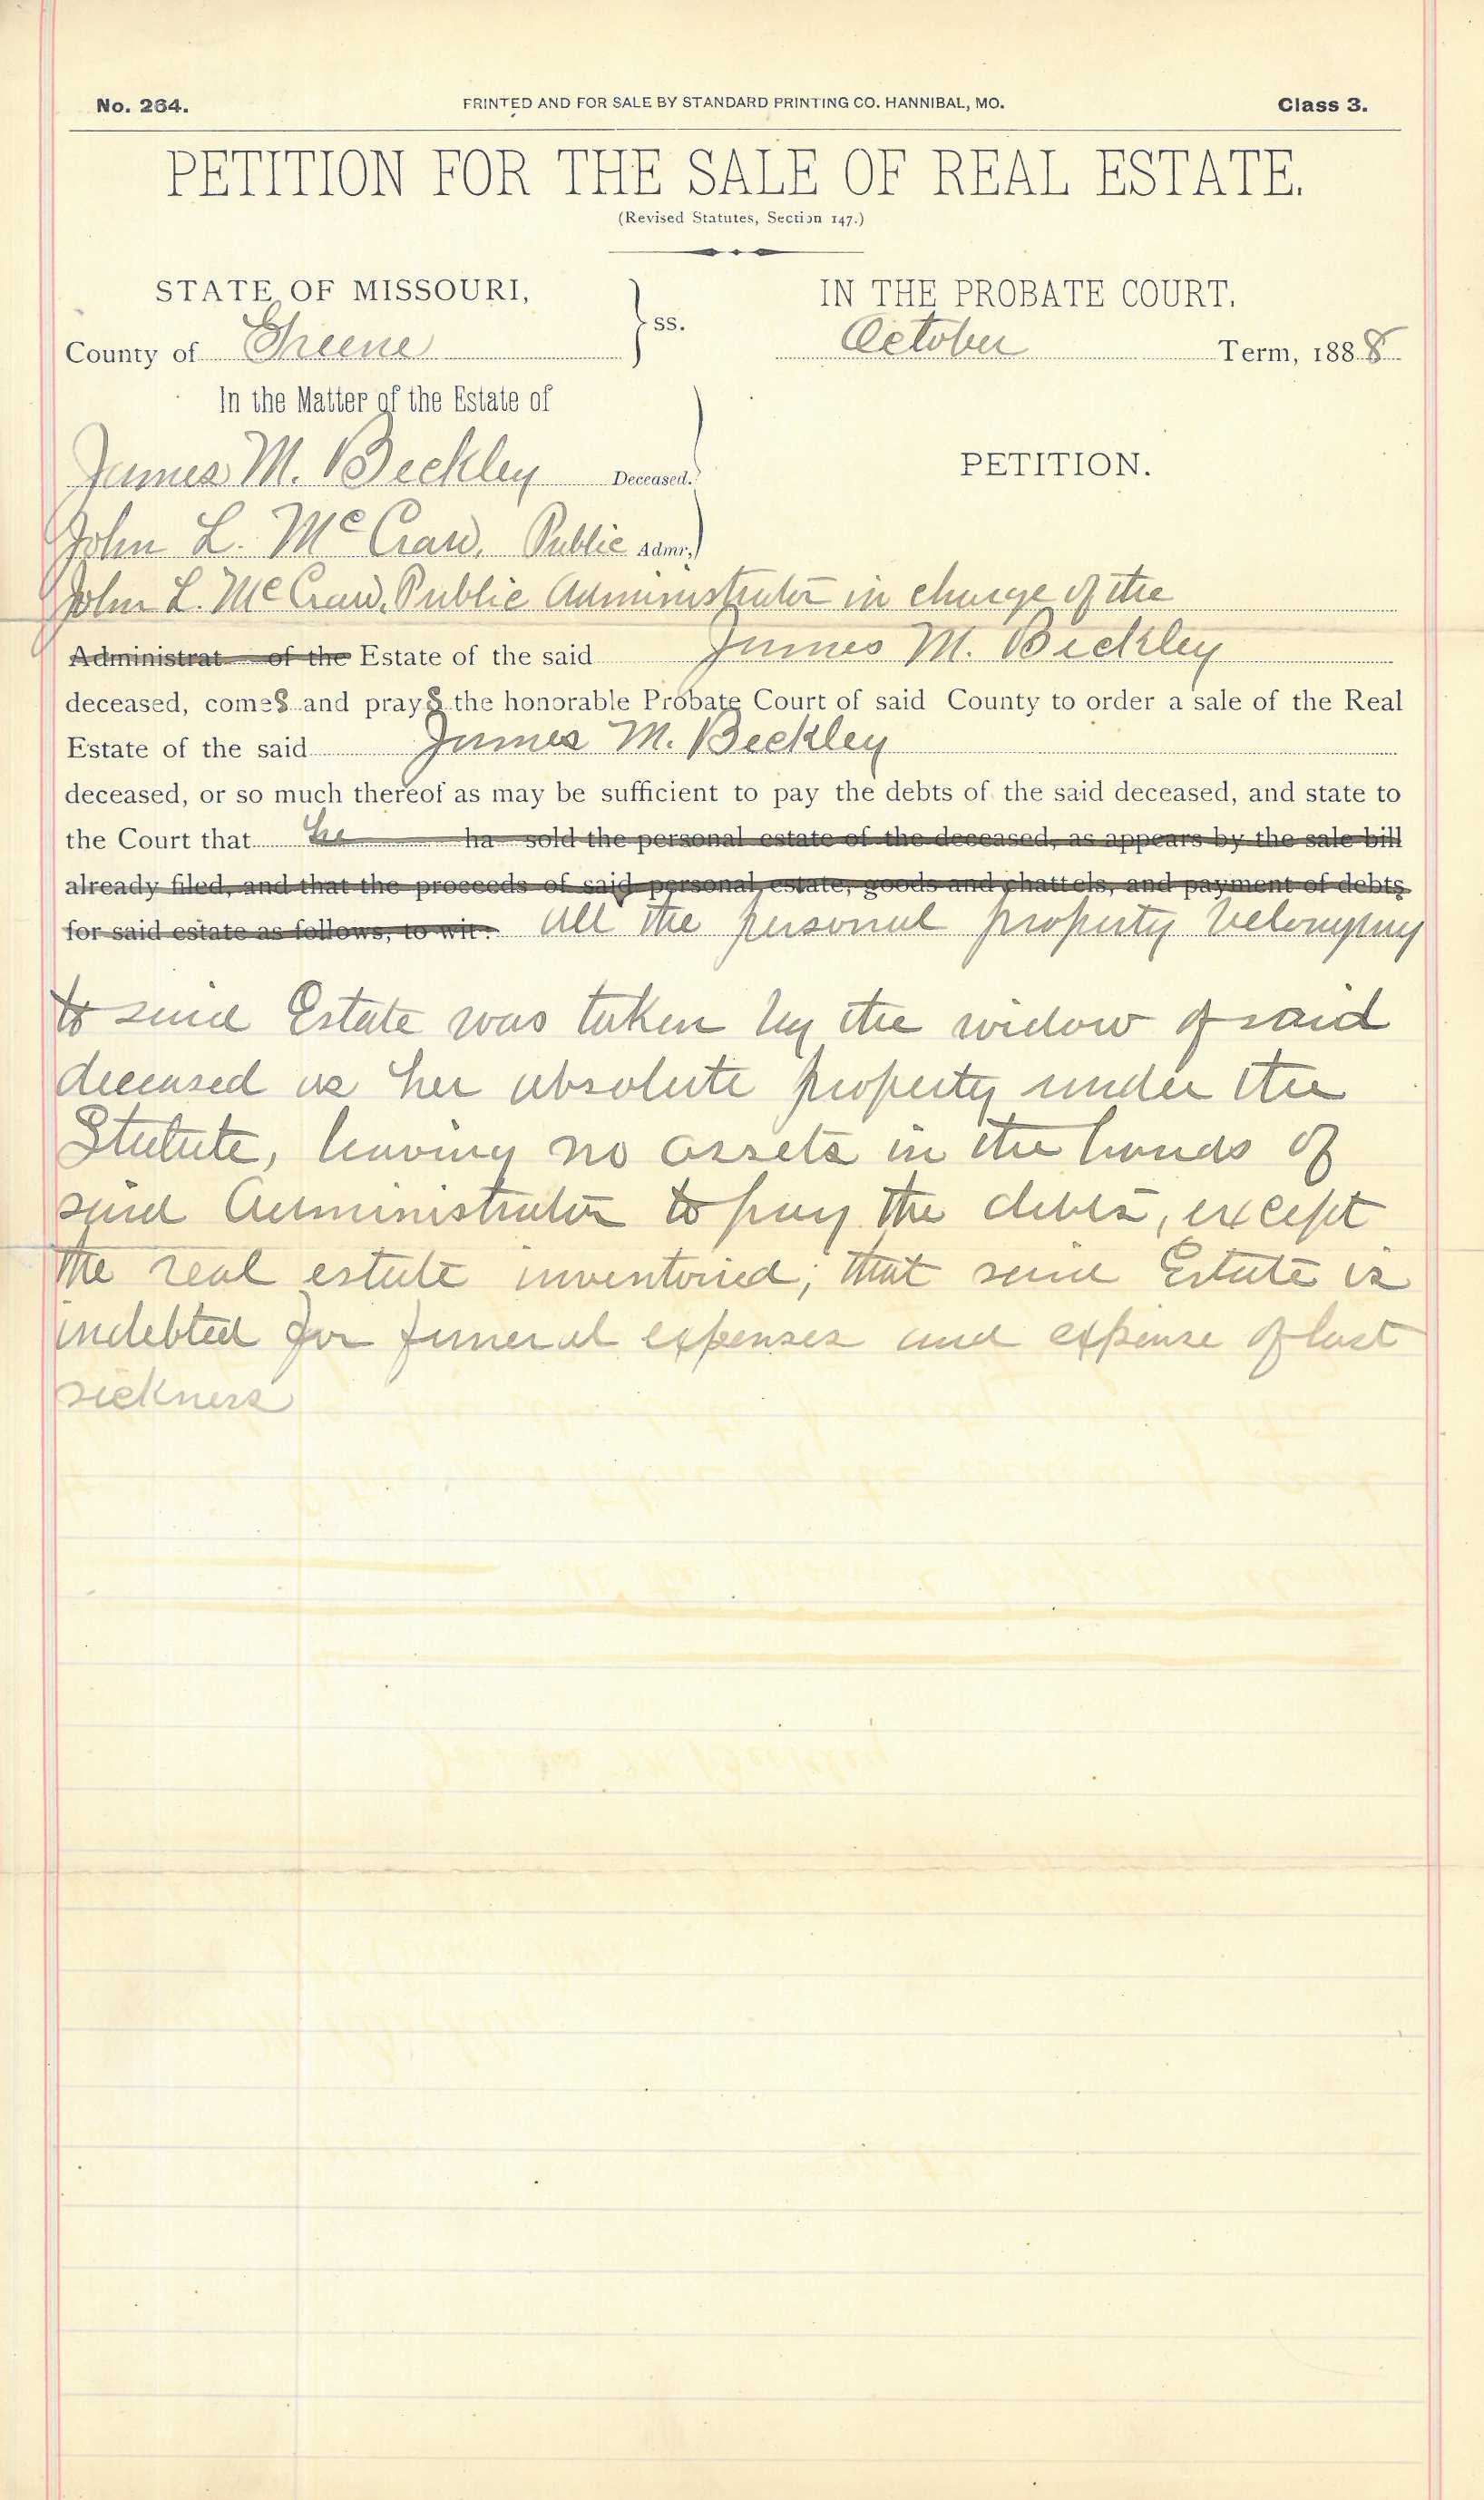 No. 264.
PRINTED AND FOR SALE BY STANDARD PRINTING CO. HANNIBAL, MO.
Class 3.
PETITION FOR THE SALE OF REAL ESTATE.
(Revised Statutes, Section 147.)
STATE OF MISSOURI,
County of Greene
ss.
IN THE PROBATE COURT.
October Term, 1888
In the Matter of the Estate of
James M. Beckley Deceased.
John L. McCraw, Public Admr,
PETITION.
John L. McCraw, Public Administrator in charge of the
Administrat of the Estate of the said James M. Beckley
deceased, comes and prays the honorable Probate Court of said County to order a sale of the Real
Estate of the said James M. Beckley
deceased, or so much thereof as may be sufficient to pay the debts of the said deceased, and state to
the Court that he ha sold the personal estate of the deceased, as appears by the sale bill
already filed, and that the proceeds of said personal estate, goods and chattels, and payment of debts
for said estate as follows, to wit: all the personal property belonging
to said Estate was taken by the widow of said
deceased as her absolute property under the
Statute, leaving no assets in the hands of
said Administrator to pay the debts, except
the real estate inventoried; that said Estate is
indebted for funeral expenses and expense of last
sickness